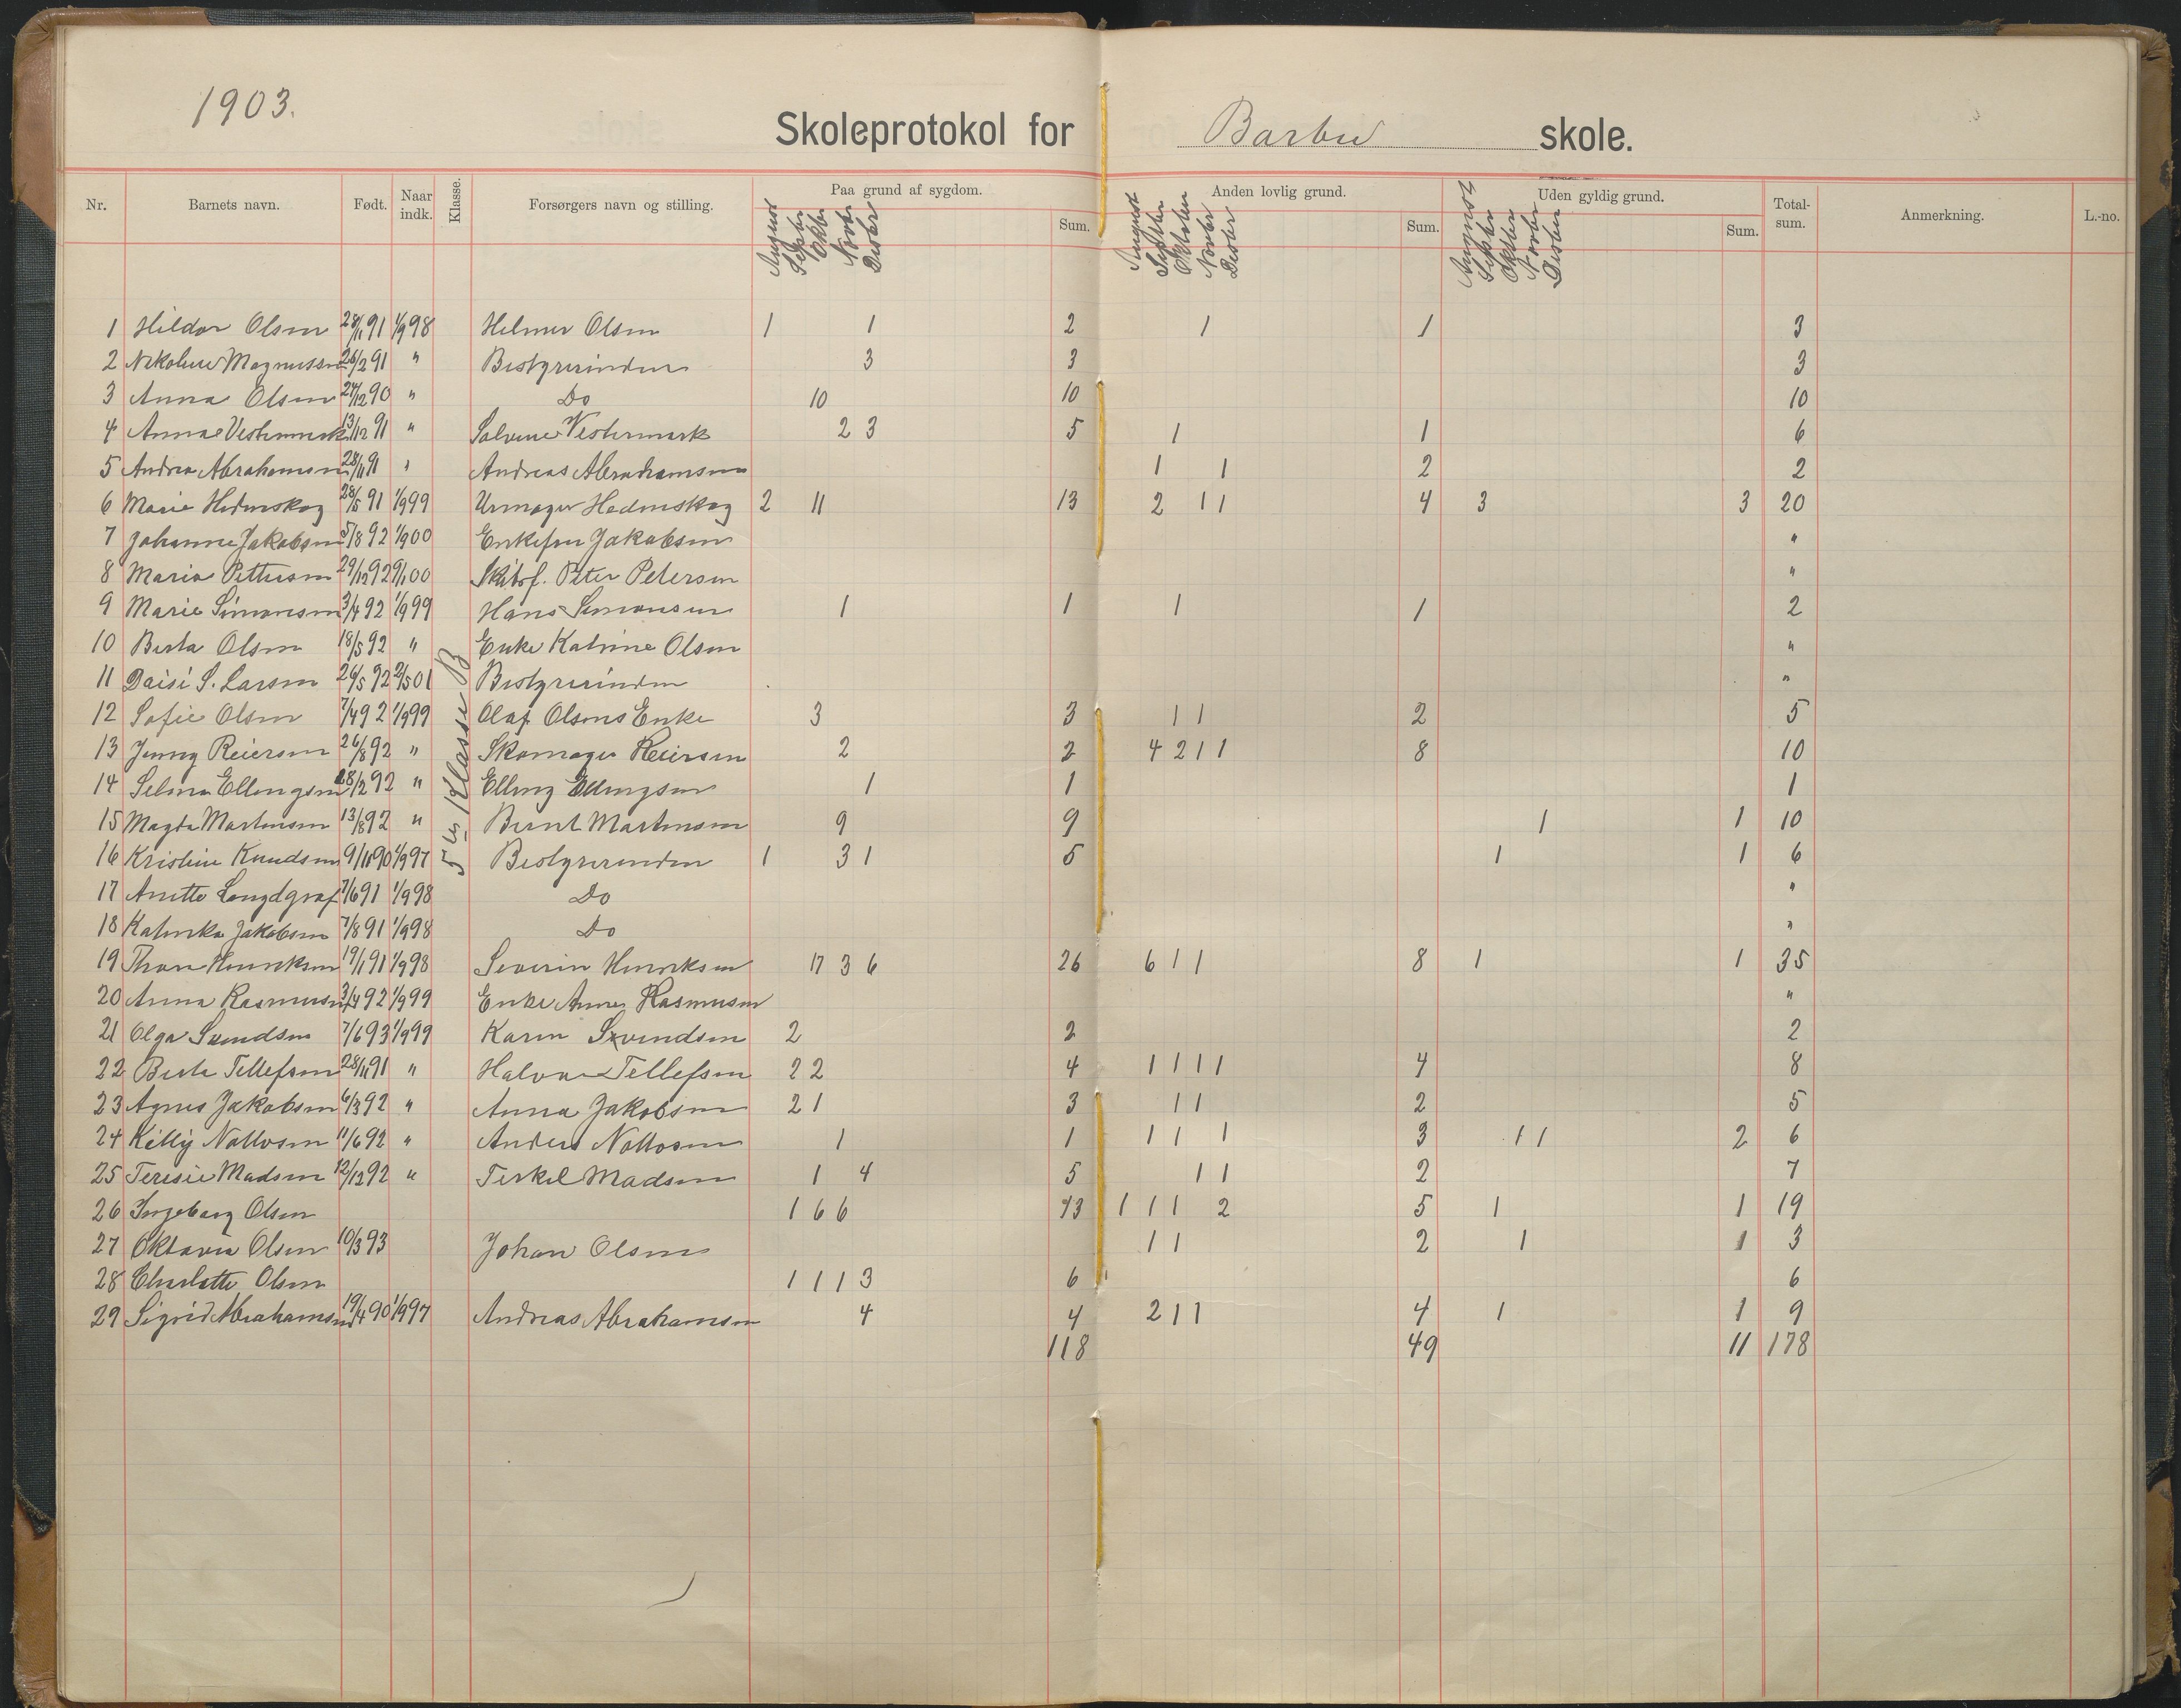 1903.
Skoleprotokol for Barbu skole.
Nr. Barnets navn. Født. Naar indk. Klasse. Forsørgers navn og stilling. Paa grund af sygdom. Sum. Anden lovlig grund. Sum. Uden gyldig grund. Sum. Total-sum. Anmerkning. L.-no.
August Septbr Oktbr Novbr Desbr August Septbr Oktober Novbr Desbr August Septbr Oktbr Novbr Desbr
5te Klasse B
1 Hildor Olsen 28/11 91 1/9 98 Helmer Olsen 1 1 2 1 1 3
2 Nikoline Magnussen 26/2 91 " Bestyrerinden 3 3 3
3 Anna Olsen 24/12 90 " Do 10 10 10
4 Anna Vestermark 13/12 91 " Solvine Vestermark 2 3 5 1 1 6
5 Andrea Abrahamsen 28/11 91 " Andreas Abrahamsen 1 1 2 2
6 Marie Hedenskog 28/5 91 1/9 99 Urmager Hedenskog 2 11 13 2 1 1 4 3 3 20
7 Johanne Jakobsen 5/8 92 1/9 00 Enkefru Jakobsen "
8 Maria Pettersen 29/12 92 9/1 00 Skibsf. Peter Petersen "
9 Marie Simonsen 3/4 92 1/9 99 Hans Simonsen 1 1 1 1 2
10 Berta Olsen 18/5 92 " Enke Katrine Olsen "
11 Daisi S. Larsen 26/5 92 2/5 01 Bestyrerinden "
12 Sofie Olsen 7/4 92 1/9 99 Olaf Olsens Enke 3 3 1 1 2 5
13 Jenny Reiersen 26/8 92 " Skomager Reiersen 2 2 4 2 1 1 8 10
14 Selma Ellengsen 28/2 92 " Elling Ellingsen 1 1 1
15 Magda Martinsen 13/8 92 " Bernt Martinsen 9 9 1 1 10
16 Kristine Knudsen 9/11 90 1/9 97 Bestyrerinden 1 3 1 5 1 1 6
17 Anitte Longdgraf 7/6 91 1/9 98 Do "
18 Katinka Jakobsen 7/8 91 1/9 98 Do "
19 Thora Henriksen 19/1 91 1/9 98 Severin Henriksen 17 3 6 26 6 1 1 8 1 1 35
20 Anna Rasmussen 3/4 92 1/9 99 Enke Anne Rasmusen "
21 Olga Svendsen 7/6 93 1/9 99 Karen Svendsen 2 2 2
22 Berte Tellefsen 28/11 91 " Halvor Tellefsen 2 2 4 1 1 1 1 4 8
23 Agnes Jakobsen 6/3 92 " Anna Jakobsen 2 1 3 1 1 2 5
24 Killy Nottosen 11/6 92 " Anders Nottosen 1 1 1 1 1 3 1 1 2 6
25 Teresie Madsen 12/12 92 " Terkel Madsen 1 4 5 1 1 2 7
26 Ingeborg Olsen 1 6 6 13 1 1 1 2 5 1 1 19
27 Oktavia Olsen 10/3 93 Johan Olsen 1 1 2 1 1 3
28 Charlotte Olsen 1 1 1 3 6 6
29 Sigrid Abrahamsen 19/4 90 1/9 97 Andreas Abrahamsen 4 4 2 1 1 4 1 1 9
118 49 11 178